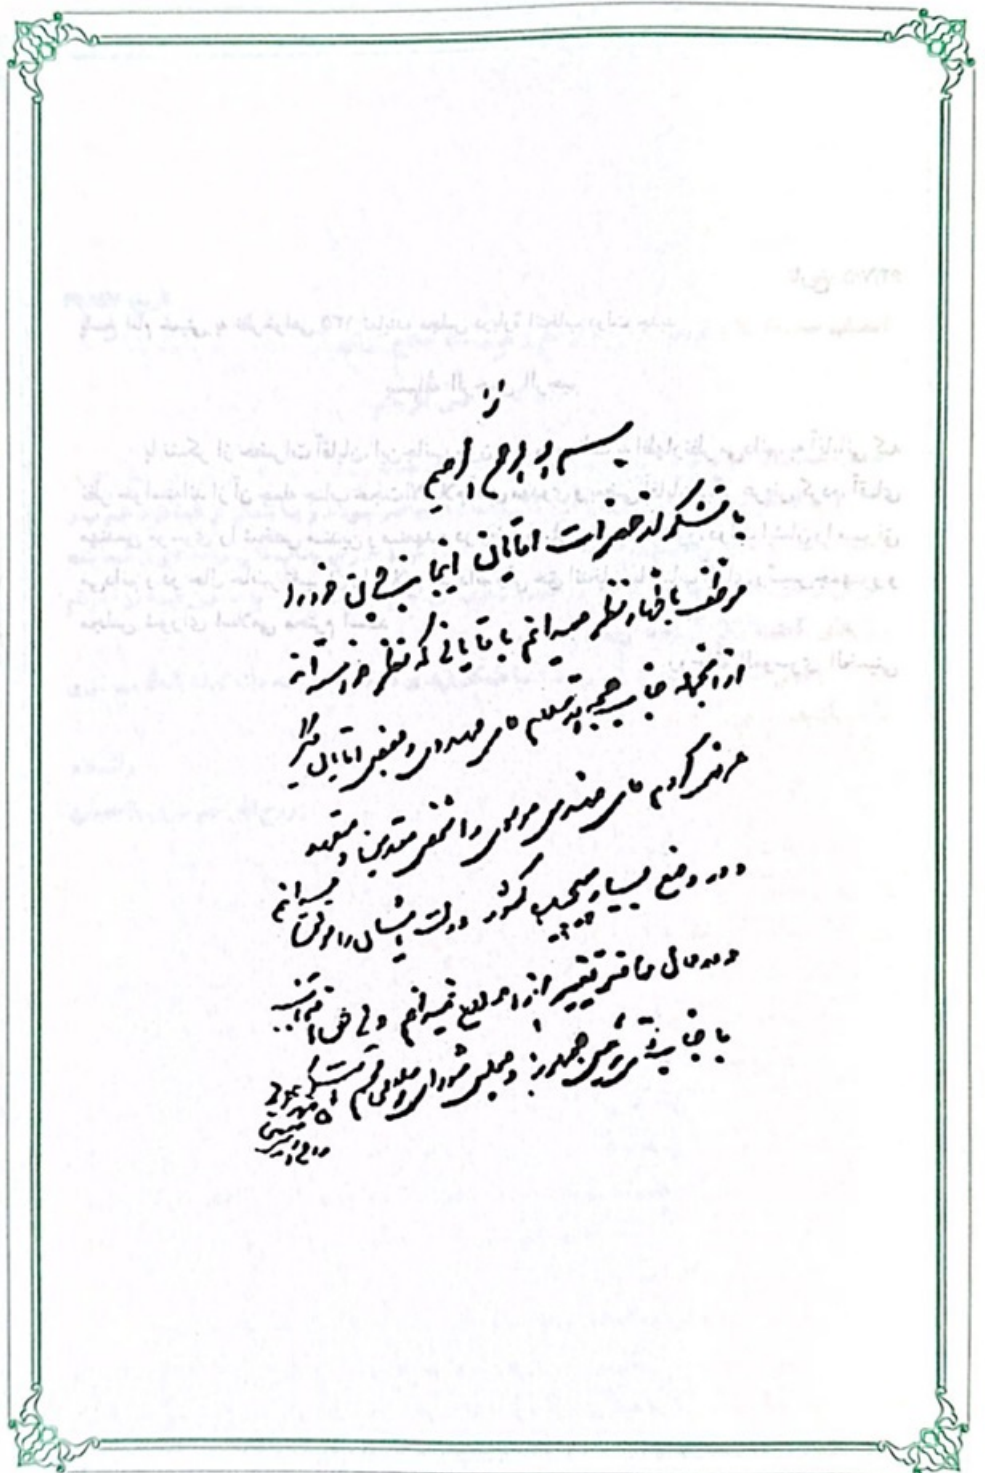 بسم الله الرحمن الرحیم
با تشکر از حضرات آقایان اینجانب چون خود را
موظف به اظهار نظر میدانم به آقایانی که نظر خواسته‌اند
از آنجمله جناب حجة الاسلام آقای مهدوی و بعضی آقایان دیگر
عرض کردم آقای مهندس موسوی را شخص متدین و متعهد
و در وضع بسیار پیچیده کشور دولت ایشان را موفق میدانم
و در حال حاضر تغییر آن را صلاح نمیدانم ولی حق انتخاب
با جناب آقای رئیس جمهور و مجلس شورای اسلامی محترم است
روح الله الموسوی الخمینی